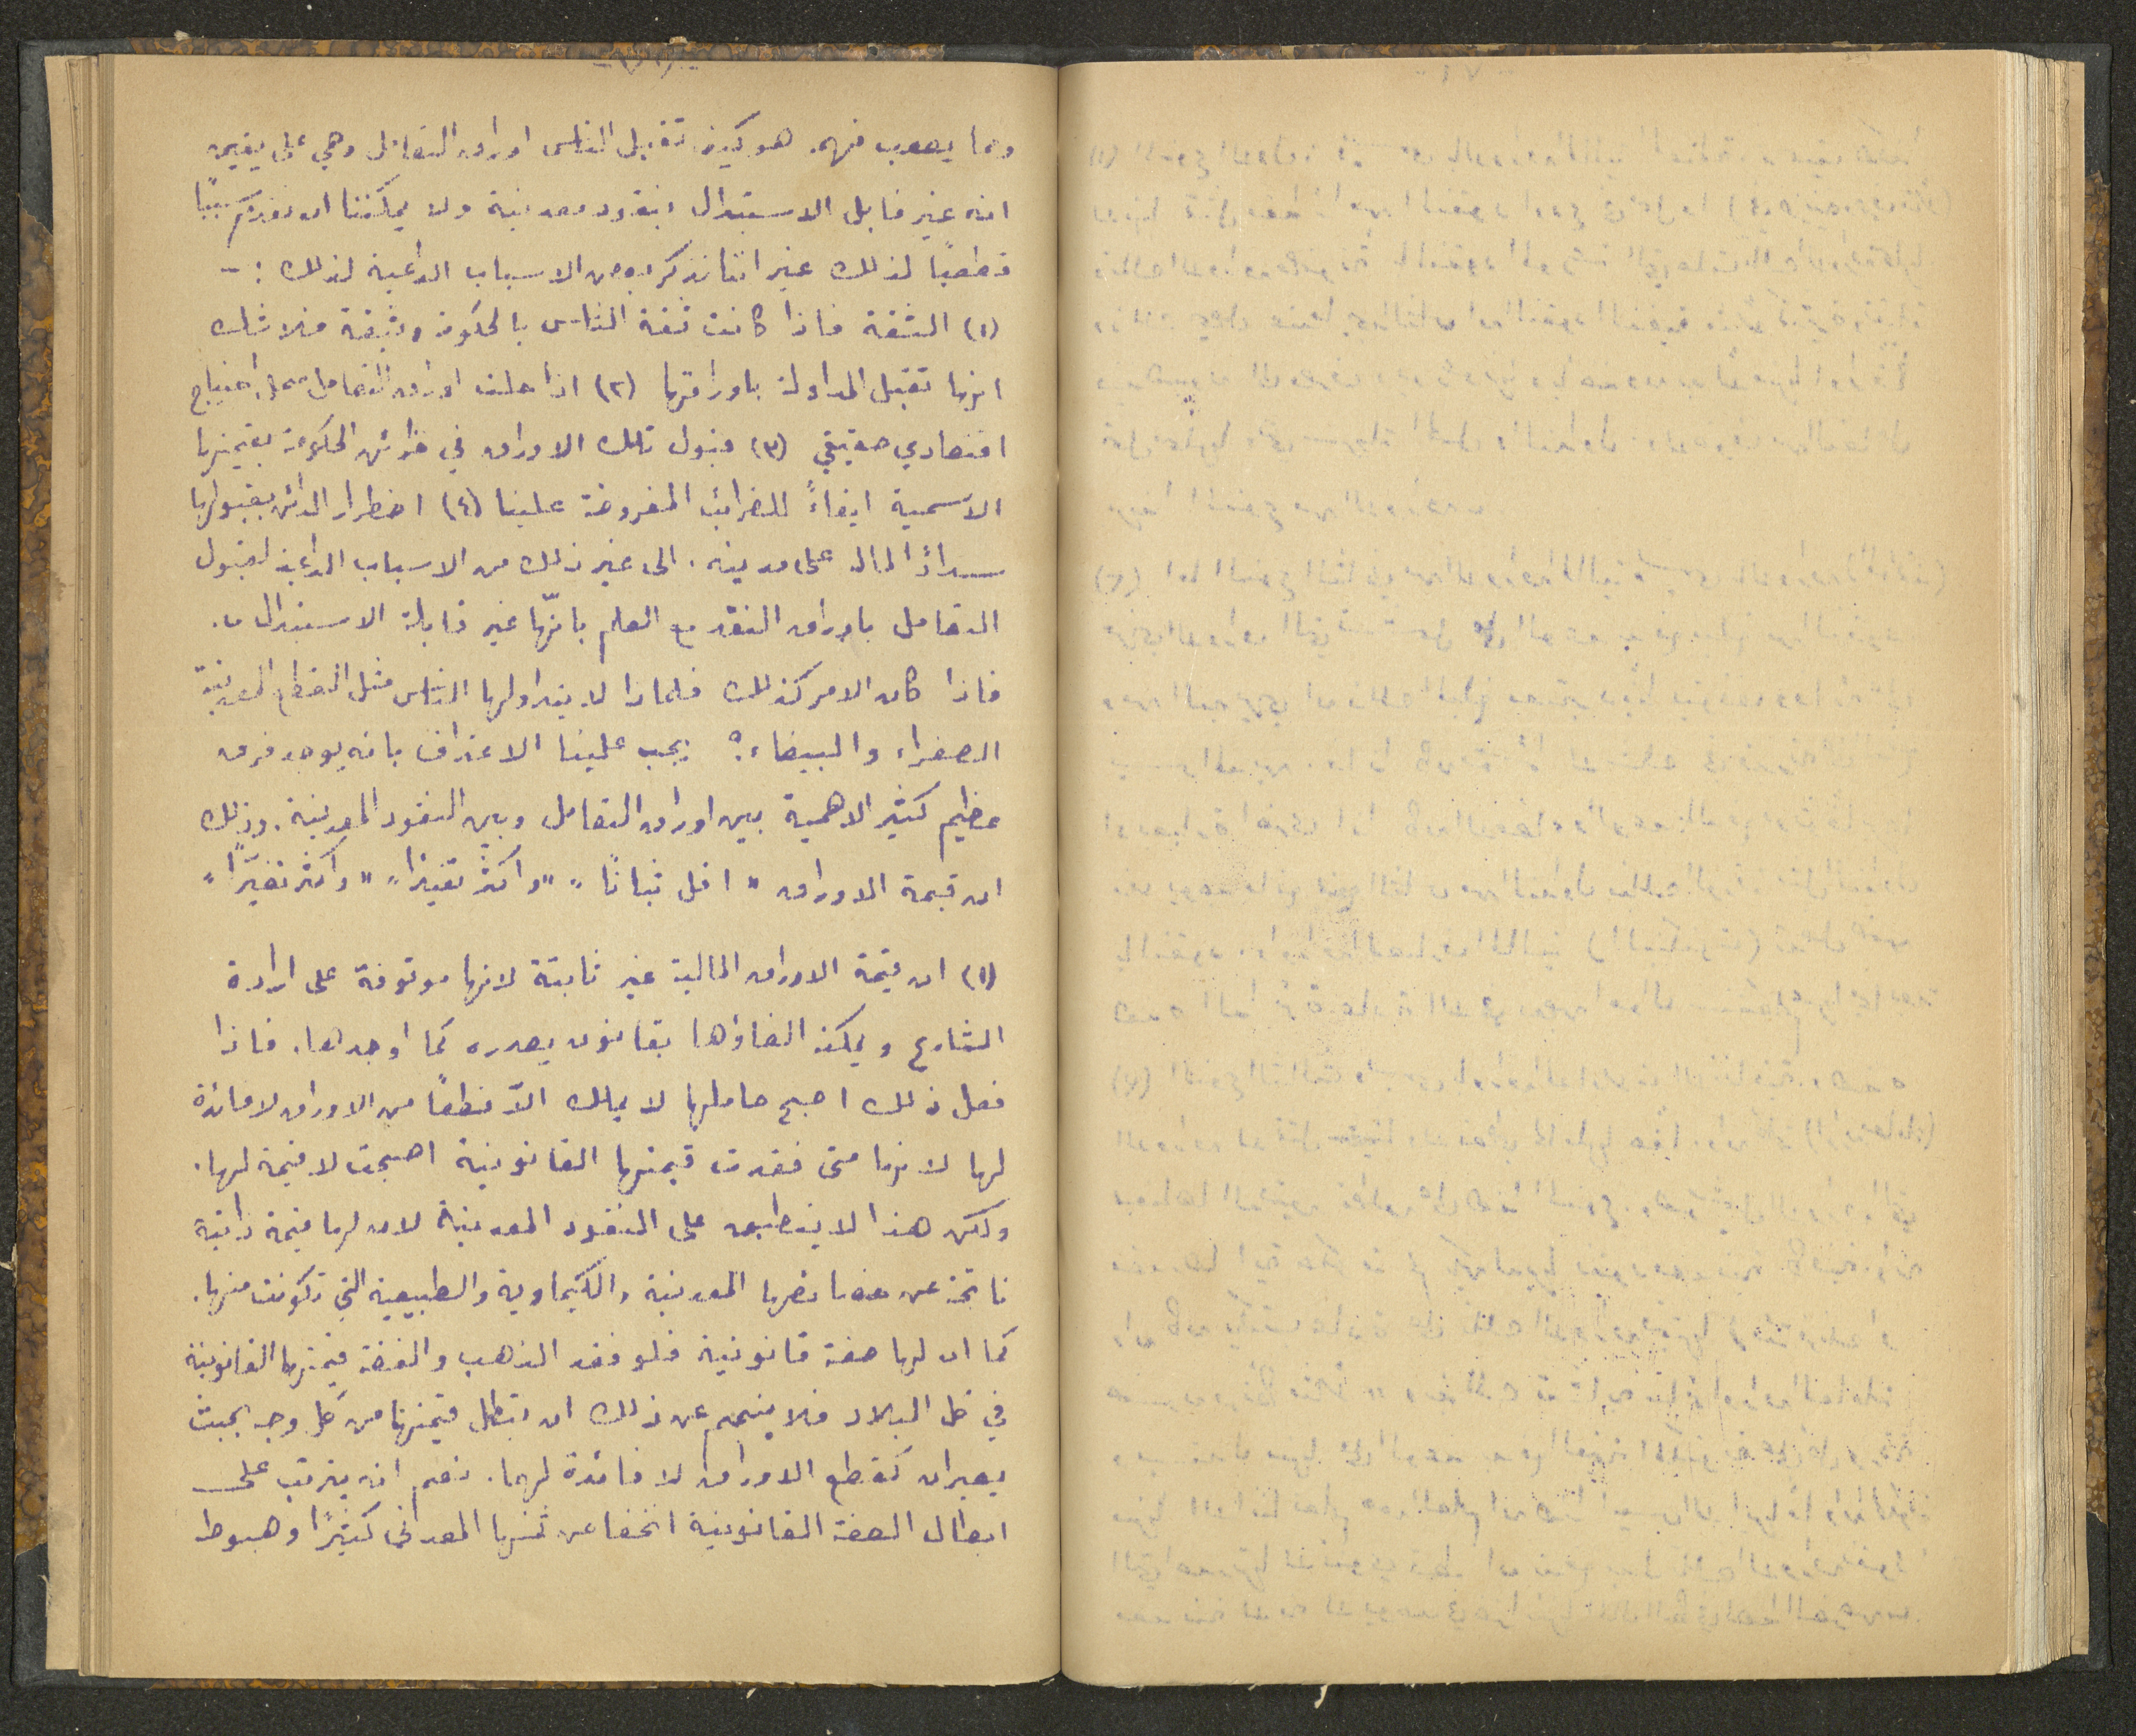 ومما يصعب فهمه هو كيف تقبل الناس اوراق التعامل وهي على يقين
انه غير قابل الاستبدال بنقود معدنية ولا يمكننا ان نقدم سببًا
قطعيًا لذلك غير اننا نذكر بعض الاسباب الداعية لذلك :-
(١) الثقة فاذا كانت ثقة الناس بالحكومة وثيقة فلا شك
انها تقبل المداولة باوراقها (٢) اذا حلت اوراق التعامل محل احتياج
اقتصادي حقيقي (٣) قبول تلك الاوراق في خزائن الحكومة بقيمتها
الاسمية ايفاءً للضرائب المفروضة علينا (٤) اضطرار الدائن بقبولها
سدادًا لمال على مدينه . الى غير ذلك من الاسباب الداعية لقبول
التعامل باوراق النقد مع العلم بانّها غير قابلة الاستبدال .
فاذا كان الامر كذلك فلماذا لا يتداولها الناس مثل القطع المعدنية
الصفراء والبيضاء ؟ يجب علينا الاعتراف بانه يوجد فرق
عظيم كثير الاهمية بين اوراق التعامل وبين النقود المعدنية . وذلك
ان قيمة الاوراق " اقل ثباتًا " " واكثر تقيدًا " " واكثر تغيّرًا "
(١) ان قيمة الاوراق المالية غير ثابتة لانها موقوفة على ارادة
الشارع ويمكنه الغاؤها بقانون يصدره كما اوجدها . فاذا
فعل ذلك اصبح حاملها لا يملك الاّ قطعًا من الاوراق لا فائدة
لها لانها متى فقدت قيمتها القانونية اصبحت لا قيمة لها .
ولكن هذا لا ينطبق على النقود المعدنية لان لها قيمة ذاتية
ناتجة عن خصائصها المعدنية والكيماوية والطبيعية التي تكونت منها .
كما ان لها صفة قانونية فلو فقد الذهب والفضة قيمتها القانونية
في كل البلاد فلا ينجم عن ذلك ان تبطل قيمتهما من كل وجه بحيث
يصيران كقطع الاوراق لا فائدة لهما . نعم انه يترتب على
ابطال الصفة القانونية انخفاض ثمنها المعدني كثيرًا وهبوط